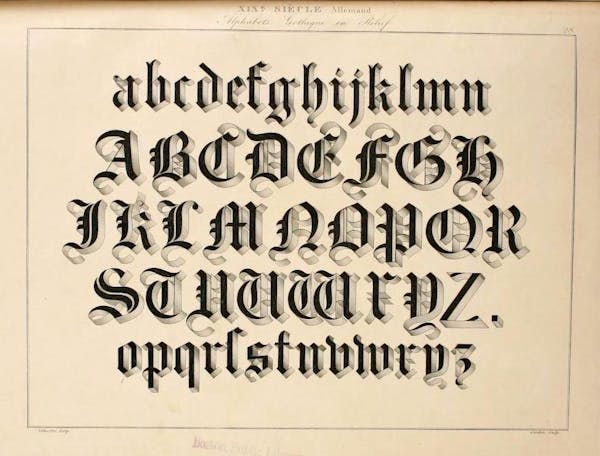 XIXe SIÈCLE Allemand
Alphabets Gothique en Relief
abcdefghijklmn
ABCDEFGH
IKLMNOPQR
STUVWXYZ.
opqrſstuvwxyz